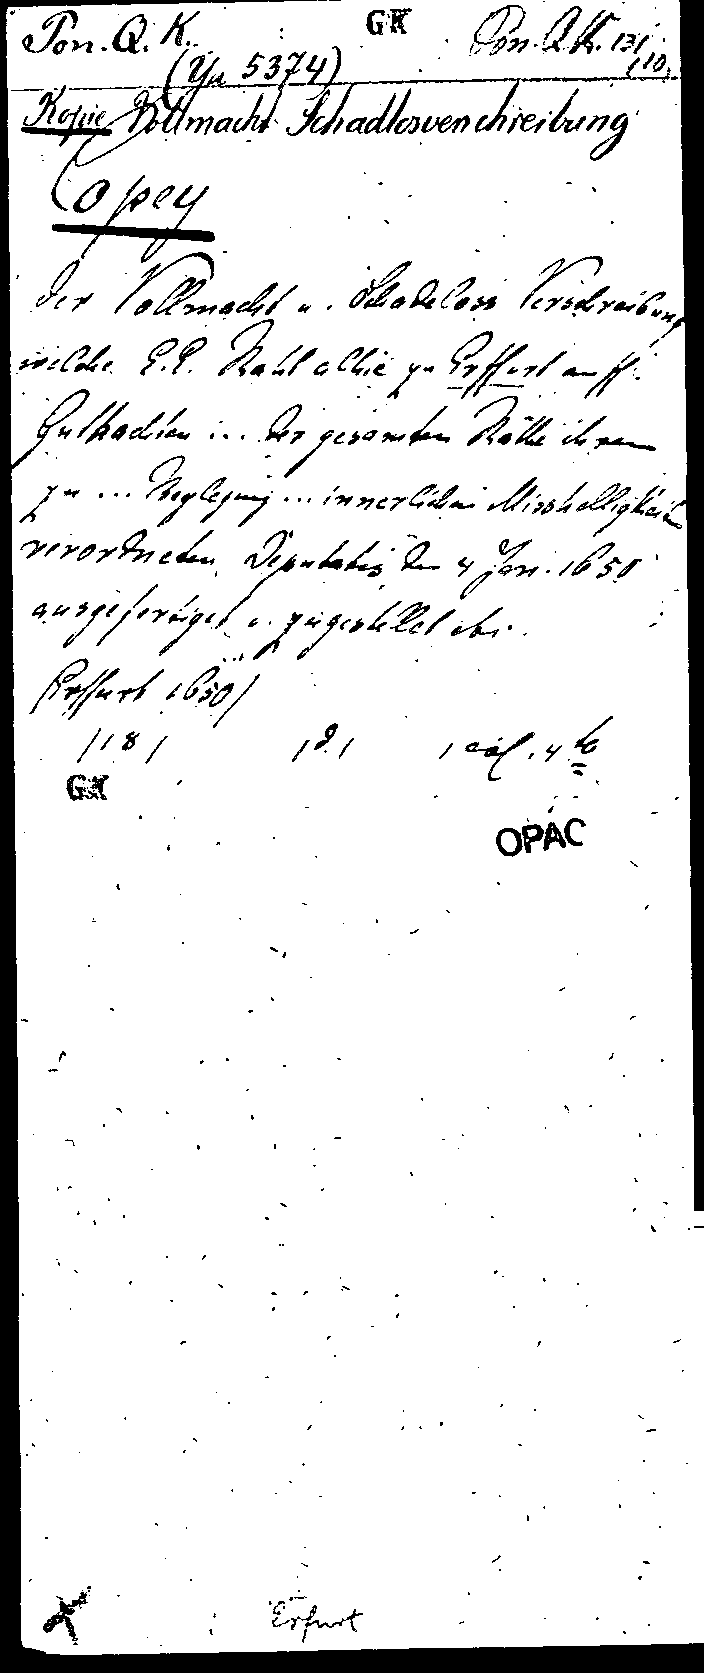 Pon. Q. K. GK Pon. QK. 131,
(Ya 5374) 110,
Kopie Vollmacht Schadlosverschreibung
Copey
der Vollmacht u. Schadeloss Verschreibung
welche E.E. Raht alhie zu Erffurt auff
Guthachten ... der gesamten Räthe ihren
zu ... Beylegung ... innerlichen Misshelligkeiten
verordneten Deputatis den 4 Jan. 1650
ausgefertiget u. zugestellet etc.
(Erffurt 1650)
GK
OPAC
Erfurt